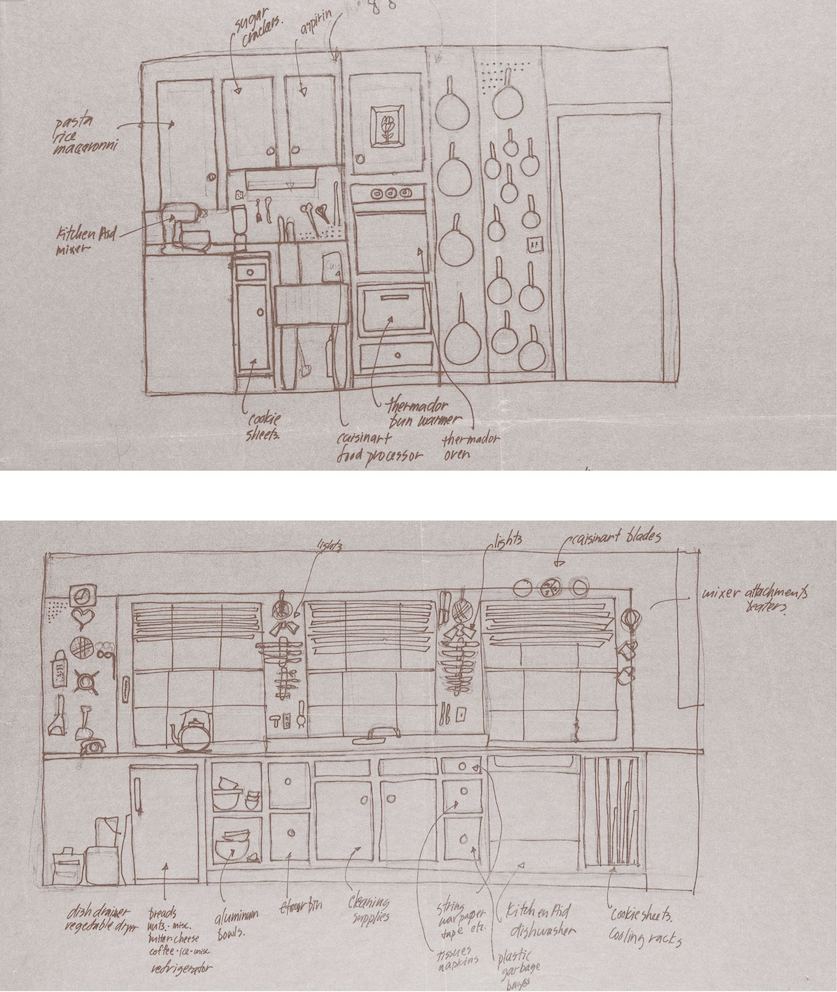 sugar
crackers.
aspirin
pasta
rice
macaronni
Kitchen Aid
mixer
cookie
sheets.
thermador
bun warmer
caisinart
food processor
thermador
oven
lights
lights
caisinart blades
mixer attachments
beaters.
dish drainer
vegetable dryer
breads
nuts. - misc.
butter cheese
coffee - ice - misc
refrigerator
aluminum
bowls.
flour bin
cleaning
supplies
string
wax paper
tape etc.
tissues
napkins
Kitchen Aid
dishwasher
plastic
garbage
bags
Cookie sheets.
Cooling racks